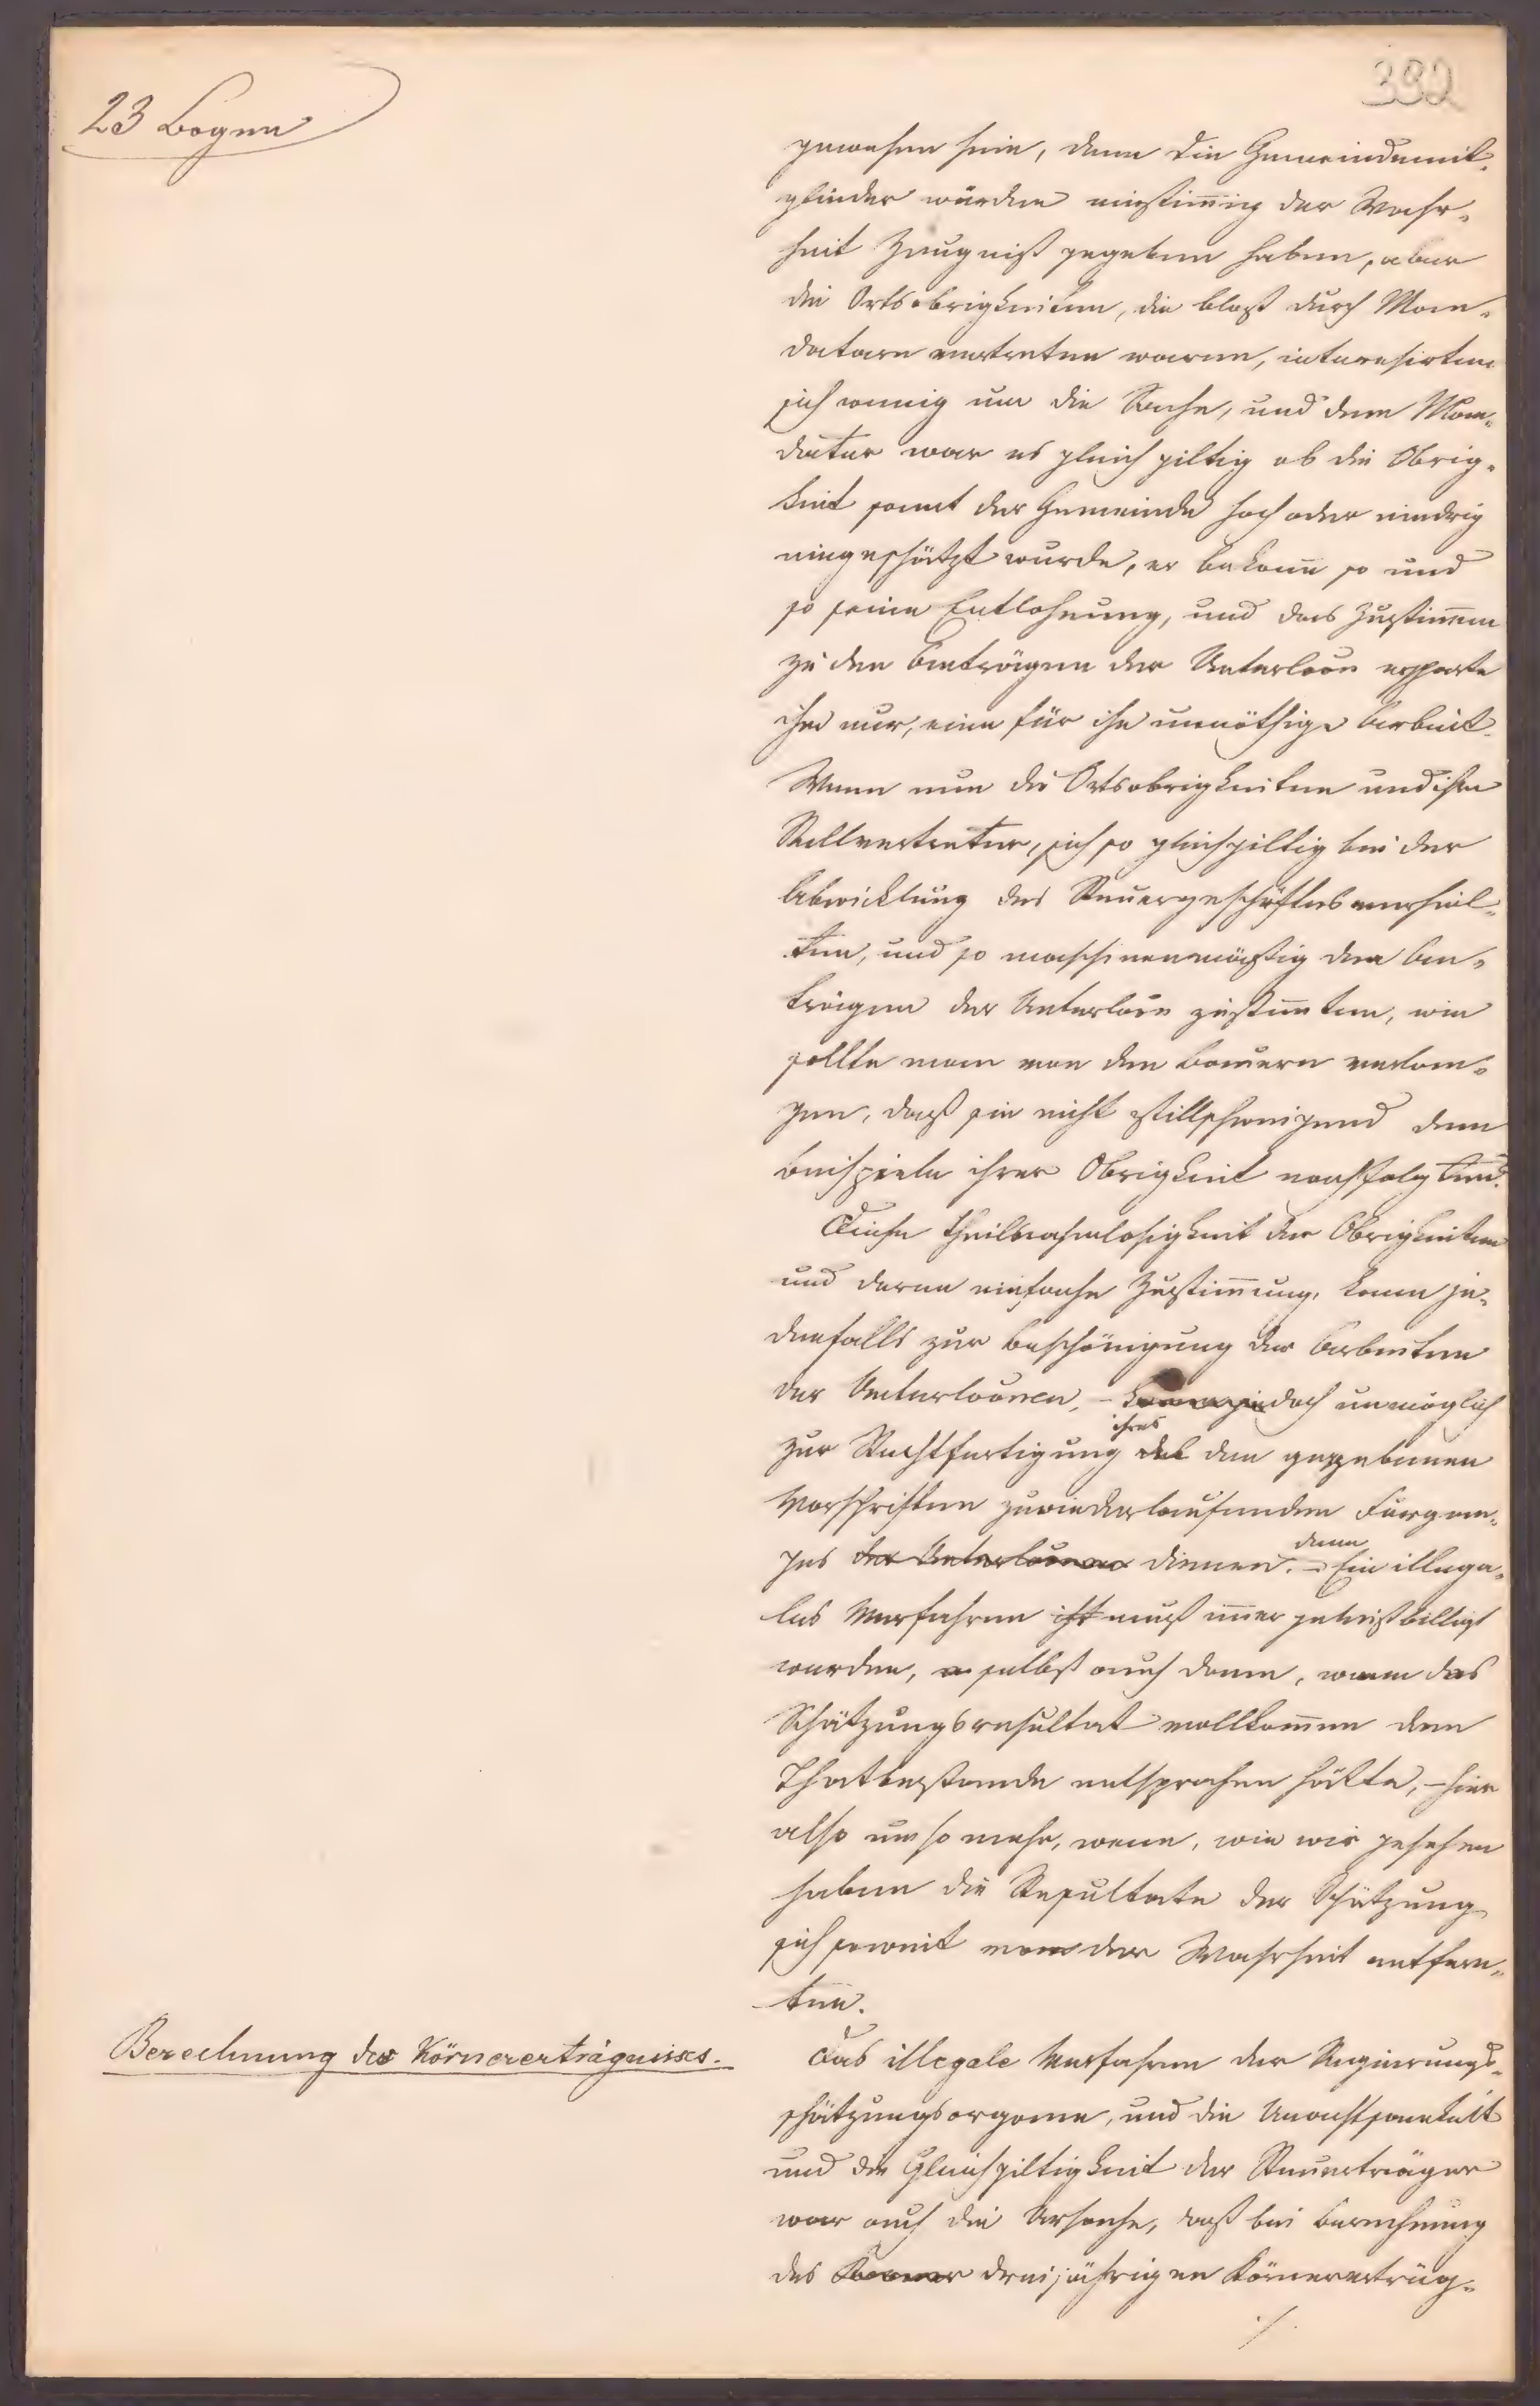 392
23 Bogen
gewesen sein, denn die Gemeindemit-
glieder würden einstimmig der Wahr-
heit Zeugniß gegeben haben, aber
die Ortsobrigkeiten, die bloß durch Man-
datare vertreten waren, interesirten
sich wenig um die Sache, und dem Man-
datar war es gleich giltig ob die Obrig-
keit samt der Gemeinde hoch oder niedrig
eingeschätzt wurde, er bekam so und
so seine Entlohnung, und das Zustimmen
zu den Anträgen der Unterloos ersparte
ihm nur, eine für ihn unnöthige Arbeit.
Wenn nun die Ortsobrigkeiten und ihre
Stellvertreter, sich so gleichgiltig bei der
Abwicklung des Steuergeschäftes verhiel-
ten, und so maschinenmäßig den An-
trägen der Unterloos zustimten, wie
sollte man von den Bauern verlan-
gen, daß sie nicht stillschweigend dem
Beispiele ihrer Obrigkeit nachfolgten.
Diese Theilnahmlosigkeit der Obrigkeiten
und deren einfache Zustimmung, kann je-
denfalls zur Beschönigung der Arbeiten
der Unterlooren, – kann jedoch unmöglich
ihres
zur Rechtfertigung des den gegebenen
Vorschriften zuwiederlaufenden Fürgan-
denn
ges der Unterlooren dienen. – Ein illega-
les Verfahren ist muß immer gemißbilligt
werden, selbst auch dann, wenn das
Schätzungsresultat vollkommen dem
Thatbestande entsprochen hätte, – hier
also um so mehr, wenn, wie wir gesehen
haben die Resultate der Schätzung
sich soweit von der Wahrheit entfern-
ten.
Berechnung des Körnererträgnisses.
Das illegale Verfahren der Regierungs-
schätzungsorgane, und die Unachtsamkeit
und die Gleichgiltigkeit der Steuerträger
war auch die Ursache, daß bei Berechnung
des dreijährigen Körnerertrüg-
./.